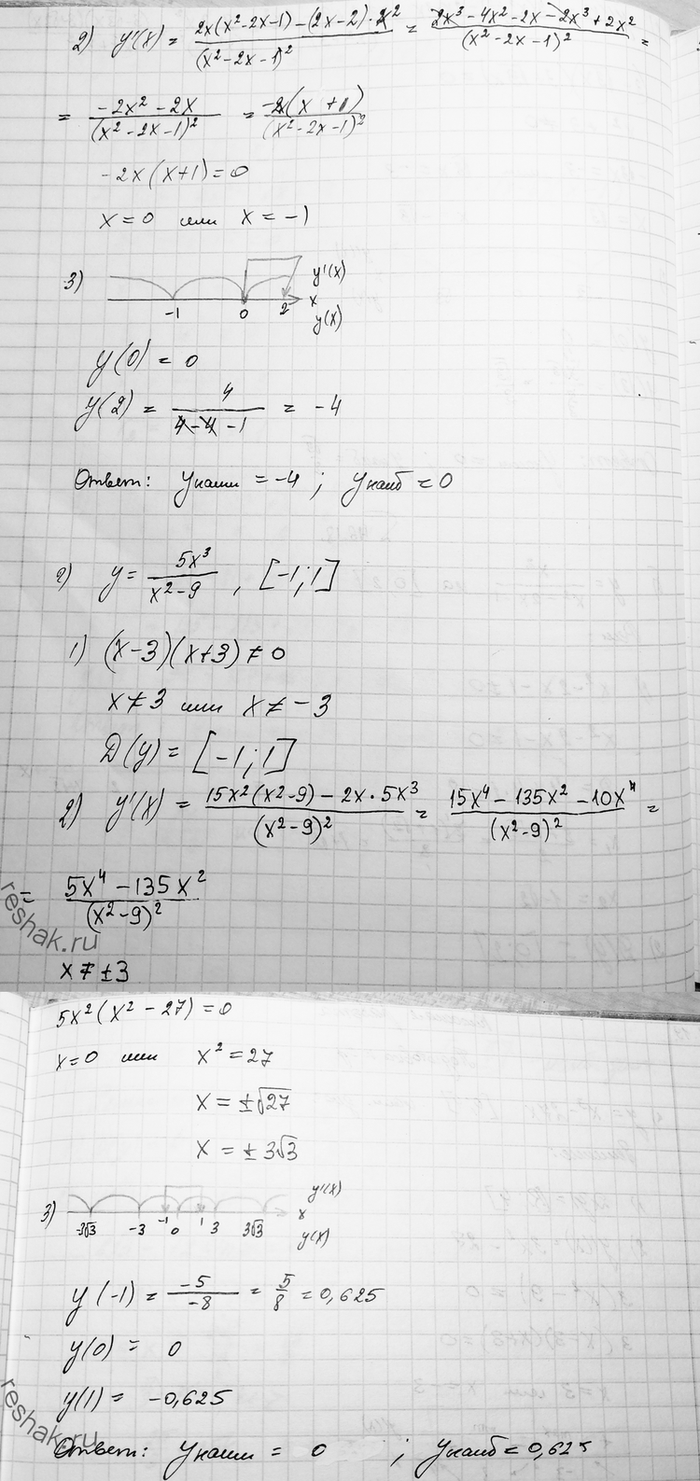 2) y'(x) = (2x(x²-2x-1)-(2x-2)·x²)/(x²-2x-1)² = (2x³-4x²-2x-2x³+2x²)/(x²-2x-1)² =
= (-2x²-2x)/(x²-2x-1)² = (-2x(x+1))/(x²-2x-1)²
-2x(x+1)=0
x=0 или x=-1
3) y'(x)
-1 0 2 x
y(x)
y(0) = 0
y(2) = 4/(4-4-1) = -4
Ответ: yнаим = -4 ; yнаиб = 0
г) y = 5x³/(x²-9) , [-1;1]
1) (x-3)(x+3)≠0
x≠3 или x≠-3
D(y) = [-1;1]
2) y'(x) = (15x²(x²-9)-2x·5x³)/(x²-9)² = (15x⁴-135x²-10x⁴)/(x²-9)² =
= (5x⁴-135x²)/(x²-9)²
reshak.ru
x≠±3
5x²(x²-27)=0
x=0 или x²=27
x=±√27
x=±3√3
3) y'(x)
-3√3 -3 -1 0 1 3 3√3 x
y(x)
y(-1) = -5/-8 = 5/8 = 0,625
y(0) = 0
y(1) = -0,625
reshak.ru
Ответ: yнаим = 0 ; yнаиб = 0,625